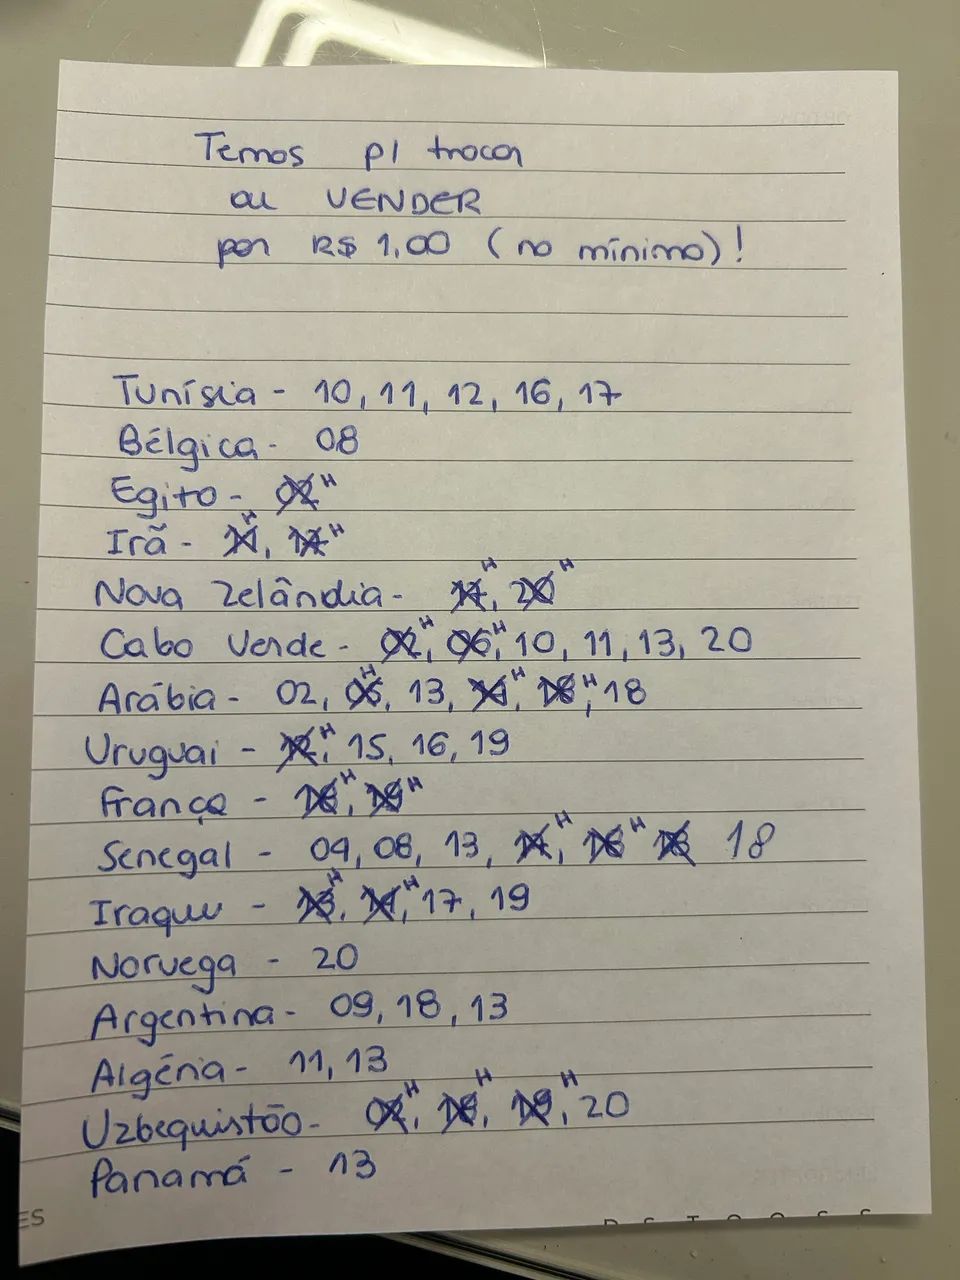 Temos p/ trocar
ou VENDER
por R$ 1,00 (no mínimo)!
Tunísia - 10, 11, 12, 16, 17
Bélgica - 08
Egito - 02 H
Irã - H, 17 H
Nova Zelândia - 17 H, 20 H
Cabo Verde - 02 H, 06 H, 10, 11, 13, 20
Arábia - 02, H, 13, H, H, 18
Uruguai - 12 H, 15, 16, 19
França - H, 19 H
Senegal - 09, 08, 13, H, H 18
Iraque - 13 H, H, 17, 19
Noruega - 20
Argentina - 09, 18, 13
Algéria - 11, 13
Uzbequistão - 02 H, H, 19 H, 20
Panamá - 13
ES